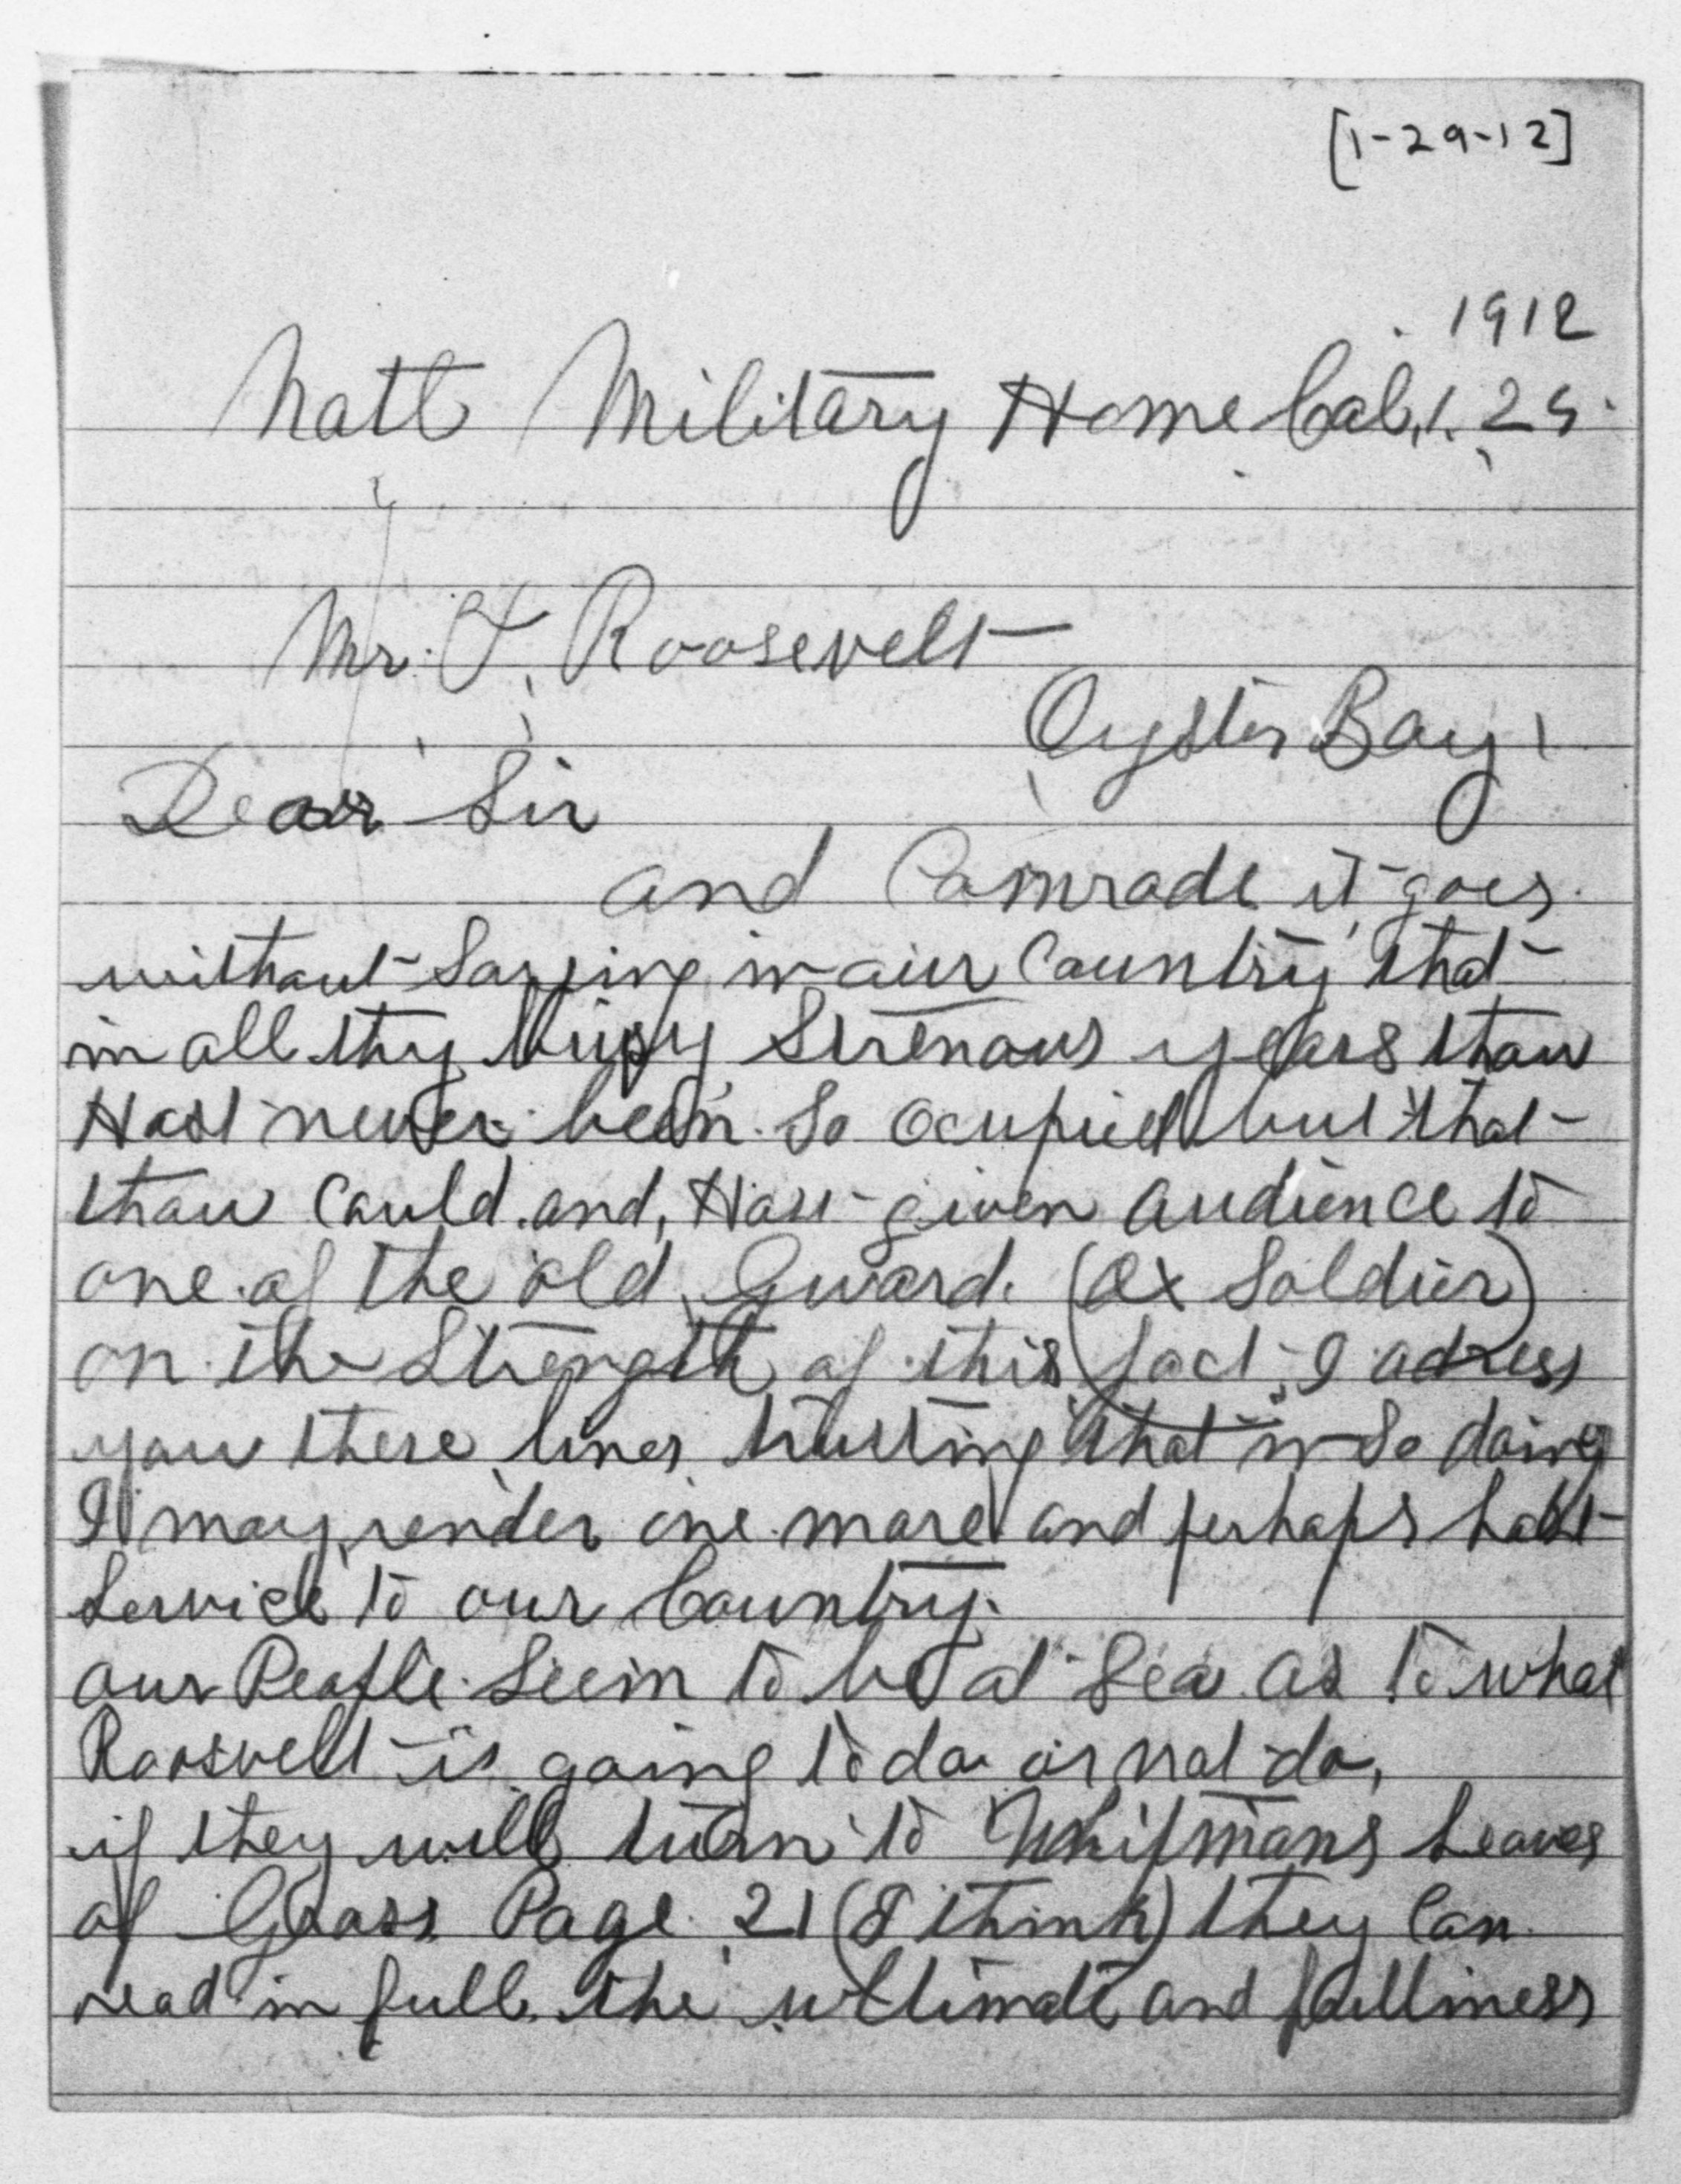 [1-29-12]
1912
Natl Military Home Cal. 1. 29.
Mr. T. Roosevelt
Oyster Bay
Dear Sir
and Comrade it goes
without saying in our Country that
in all thy busy Strenous years thou
Hast never been so ocupied but that
thou Could and, Hast given audience to
one of the old Guard. (Ex Soldier)
on the Strength of this fact I adress
you these lines trusting that in so doing
I may render one more and perhaps last
Service to our Country.
our People Seem to be at Sea as to what
Roosvelt is going to do or not do,
if they will turn to Whitmans Leaves
of Grass Page 21 (I think) they Can
read in full the ultimate and fulliness